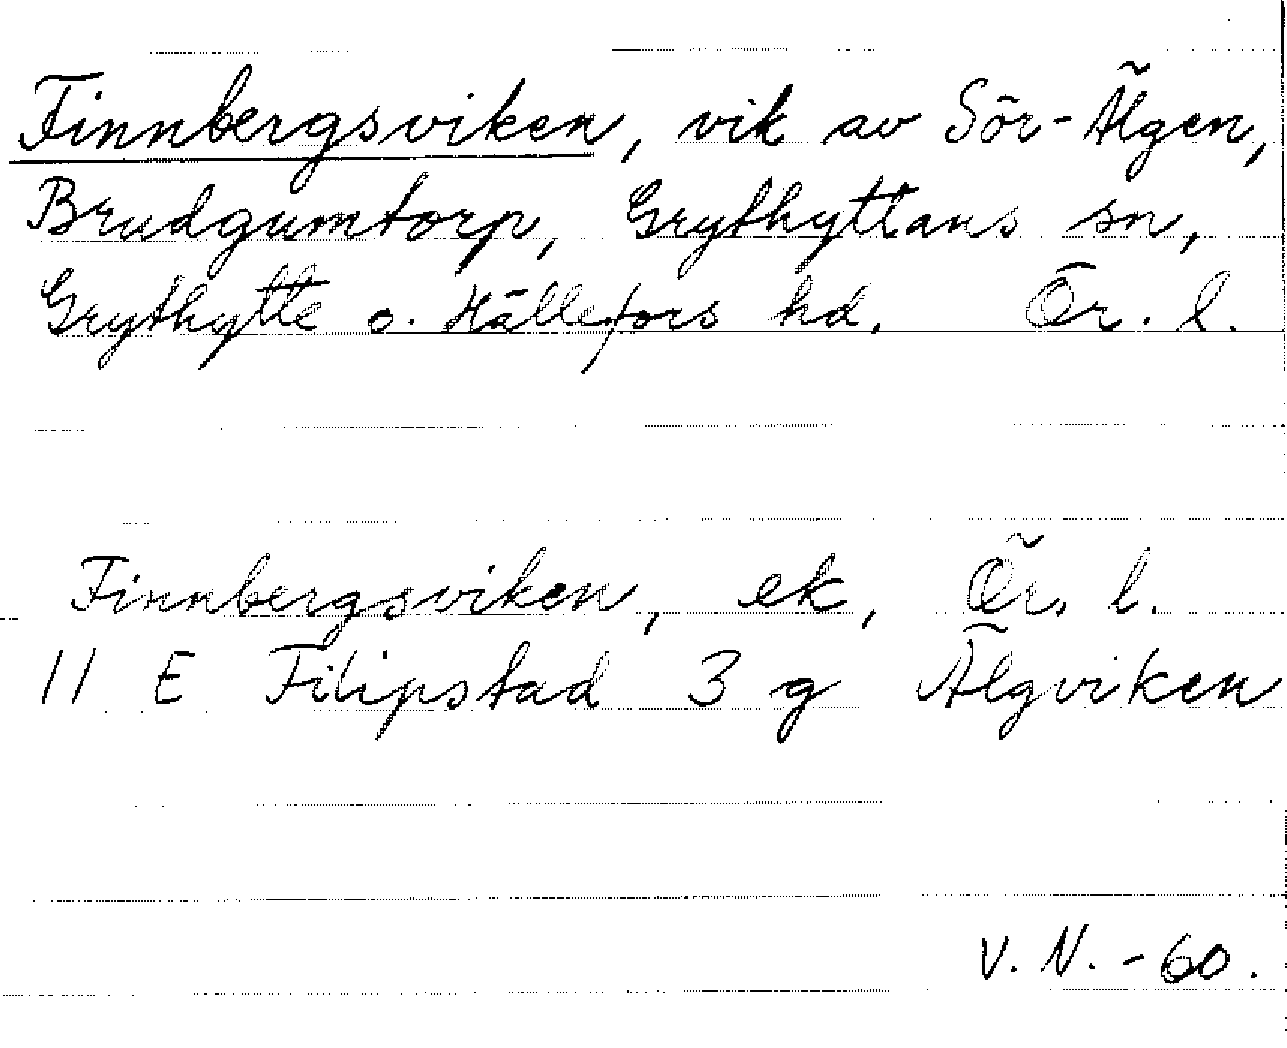 Finnbergsviken, vik av Sör-Älgen,
Brudgumtorp, Grythyttans sn,
Grythytte o. Hällefors hd. Ör. l.
Finnbergsviken, ek, Ör. l.
11 E Filipstad 3 g Älgviken
V. N. -60.